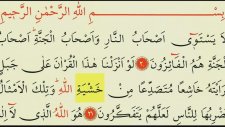 بِسْمِ اللَّهِ الرَّحْمَٰنِ الرَّحِيمِ
لَا يَسْتَوِي أَصْحَابُ النَّارِ وَأَصْحَابُ الْجَنَّةِ أَصْحَابُ
الْجَنَّةِ هُمُ الْفَائِزُونَ ٢٠ لَوْ أَنْزَلْنَا هَٰذَا الْقُرْآنَ عَلَىٰ جَبَلٍ
لَرَأَيْتَهُ خَاشِعًا مُتَصَدِّعًا مِنْ خَشْيَةِ اللَّهِ وَتِلْكَ الْأَمْثَالُ
نَضْرِبُهَا لِلنَّاسِ لَعَلَّهُمْ يَتَفَكَّرُونَ ٢١ هُوَ اللَّهُ الَّذِي لَا إِلَٰهَ